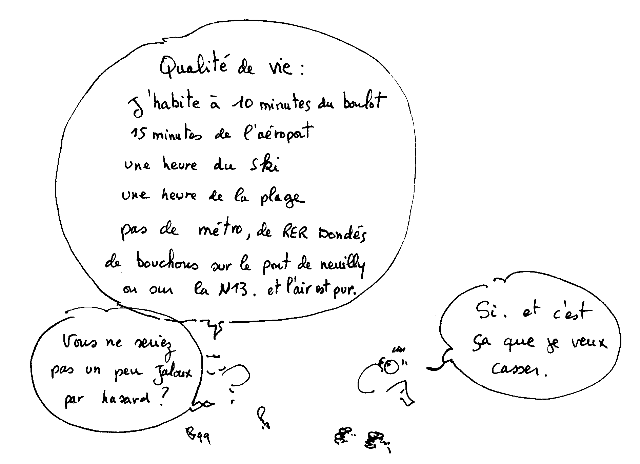 Qualité de vie :
J'habite à 10 minutes du boulot
15 minutes de l'aéroport
une heure du ski
une heure de la plage
pas de métro, de RER bondés
de bouchons sur le pont de neuilly
ou sur la N13. et l'air est pur.
Vous ne seriez
pas un peu jaloux
par hasard ?
Si. et c'est
ça que je veux
casser.